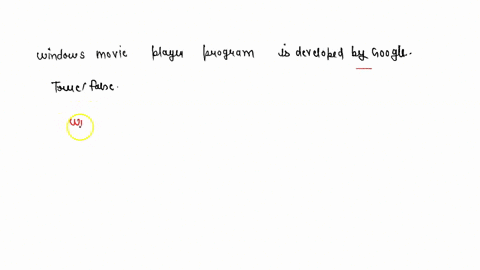 windows movie player program is developed by Google.
True/false.
Wi